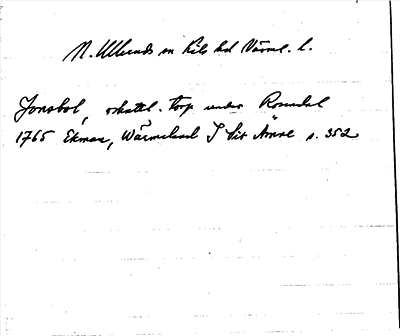 N. Ulleruds sn Kils hd Värml. l.
Jonsbol, oskattl. torp under Rosendal
1765 Ekman, Wärmeland I sit Ämne s. 352